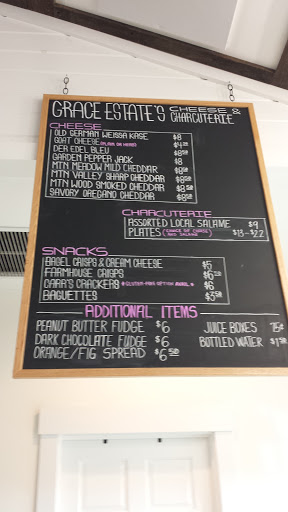 GRACE ESTATE'S CHEESE & CHARCUTERIE
CHEESE
OLD GERMAN WEISSA KASE $8
GOAT CHEESE (PLAIN OR HERB) $4.25
DER EDEL BLEU $8.50
GARDEN PEPPER JACK $8
MTN MEADOW MILD CHEDDAR $8.50
MTN VALLEY SHARP CHEDDAR $8.50
MTN WOOD SMOKED CHEDDAR $8.50
SAVORY OREGANO CHEDDAR $8.50
CHARCUTERIE
ASSORTED LOCAL SALAME $9
PLATES (CHOICE OF CHEESE AND SALAME) $13-$22
SNACKS
BAGEL CRISPS & CREAM CHEESE $5
FARMHOUSE CRISPS
CARR'S CRACKERS *GLUTEN-FREE OPTION AVAIL.* $6
BAGUETTES $3.50
ADDITIONAL ITEMS
PEANUT BUTTER FUDGE $6 JUICE BOXES 75¢
DARK CHOCOLATE FUDGE $6 BOTTLED WATER $1.50
ORANGE/FIG SPREAD $6.50